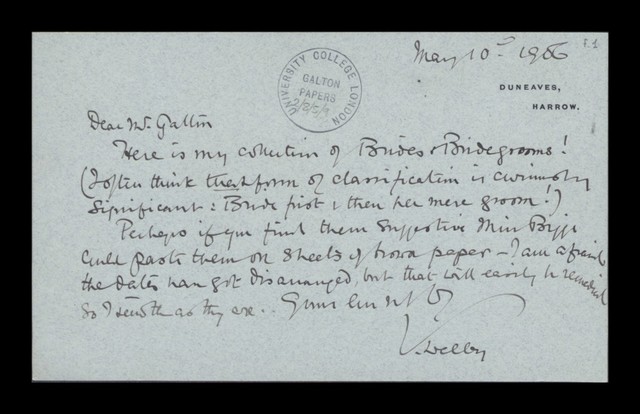 f.1
May 10th 1906
DUNEAVES,
HARROW.
UNIVERSITY COLLEGE LONDON
GALTON
PAPERS
Dear Mr. Galton
Here is my collection of Brides & Bridegrooms!
(I often think that form of classification is curiously
significant: Bride first & then her mere groom!)
Perhaps if you find them suggestive Miss Biggs
could paste them on sheets of brown paper – I am afraid
the dates have got disarranged, but that will easily be remedied
So I send them as they are..
V. Welby